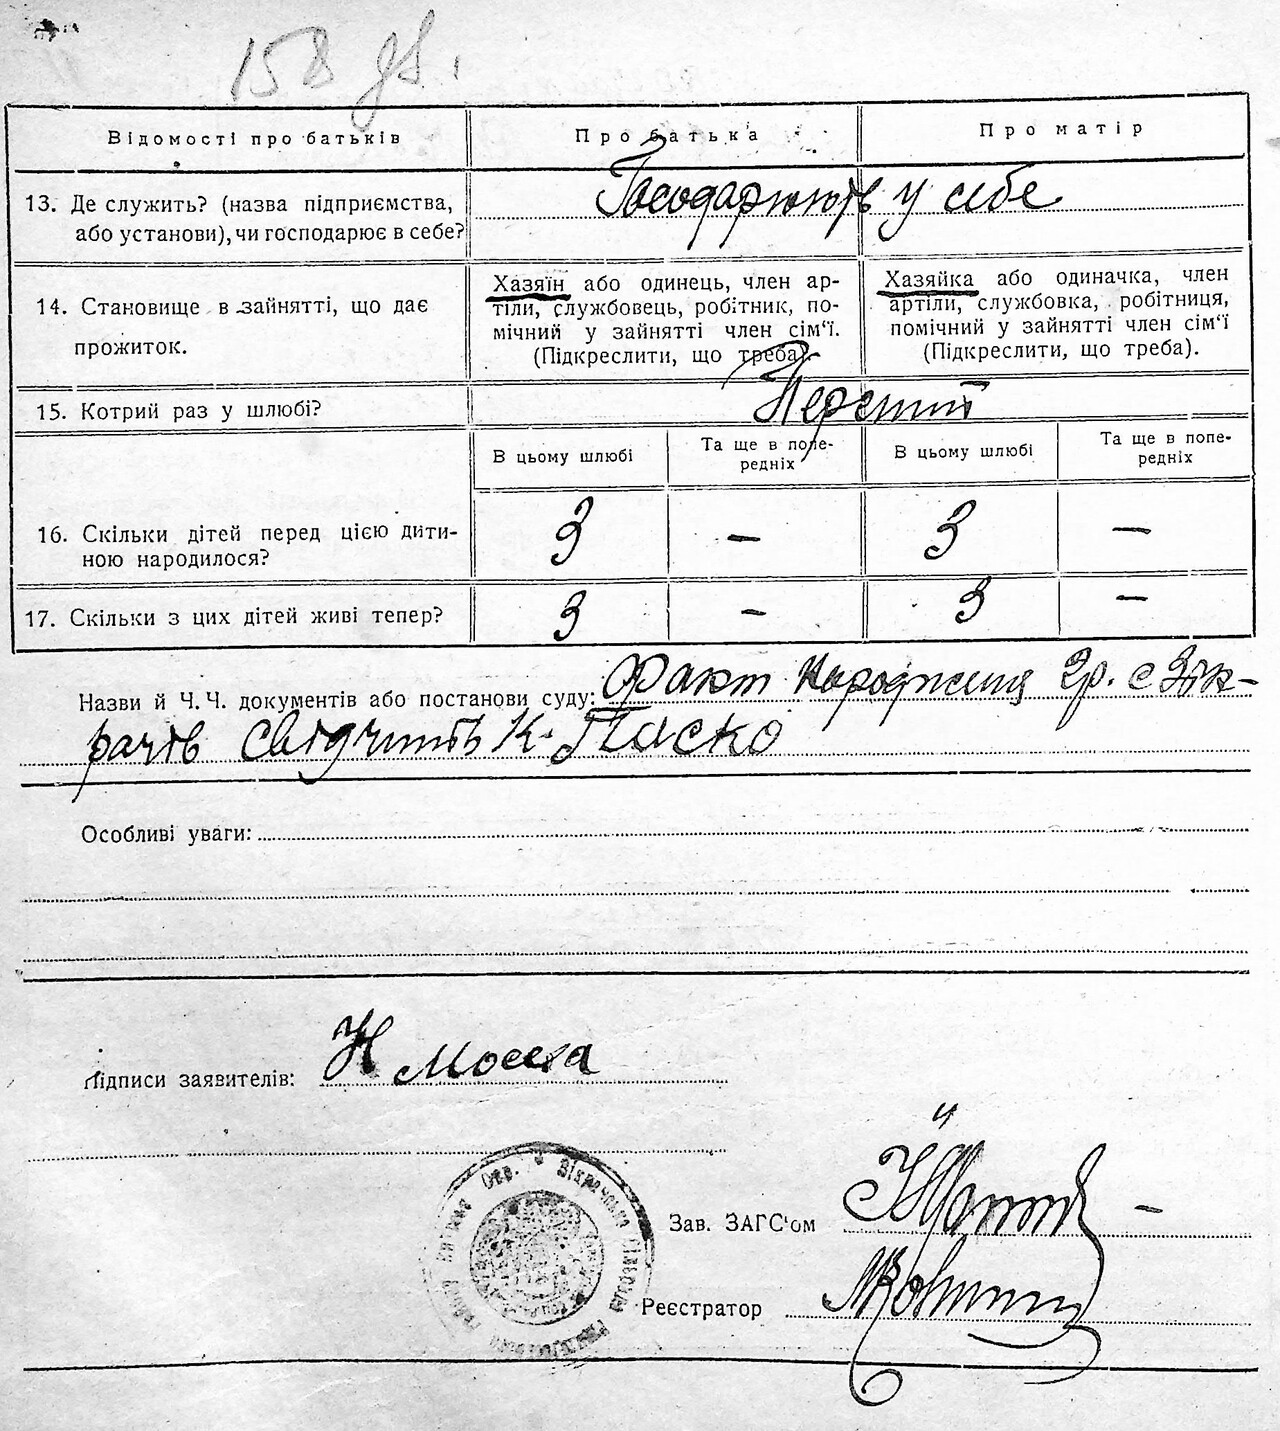 158 дв.
Відомості про батьків
Про батька
Про матір
13. Де служить? (назва підприємства,
або установи), чи господарює в себе?
Господарюють у себе
14. Становище в зайнятті, що дає
прожиток.
Хазяїн або одинець, член ар-
тіли, службовець, робітник, по-
мічний у зайнятті член сім'ї.
(Підкреслити, що треба).
Хазяйка або одиначка, член
артіли, службовка, робітниця,
помічний у зайнятті член сім'ї
(Підкреслити, що треба).
15. Котрий раз у шлюбі?
Перший
В цьому шлюбі
Та ще в попе-
редніх
В цьому шлюбі
Та ще в попе-
редніх
16. Скільки дітей перед цією дити-
ною народилося?
3 — 3 —
17. Скільки з цих дітей живі тепер?
3 — 3 —
Назви й Ч. Ч. документів або постанови суду: Факт народження гр. с Зік-
рачів свідчить К. Паско
Особливі уваги:
Підписи заявителів: Н
Окр. Зікрачівсько
Зав. ЗАГС'ом
Реєстратор